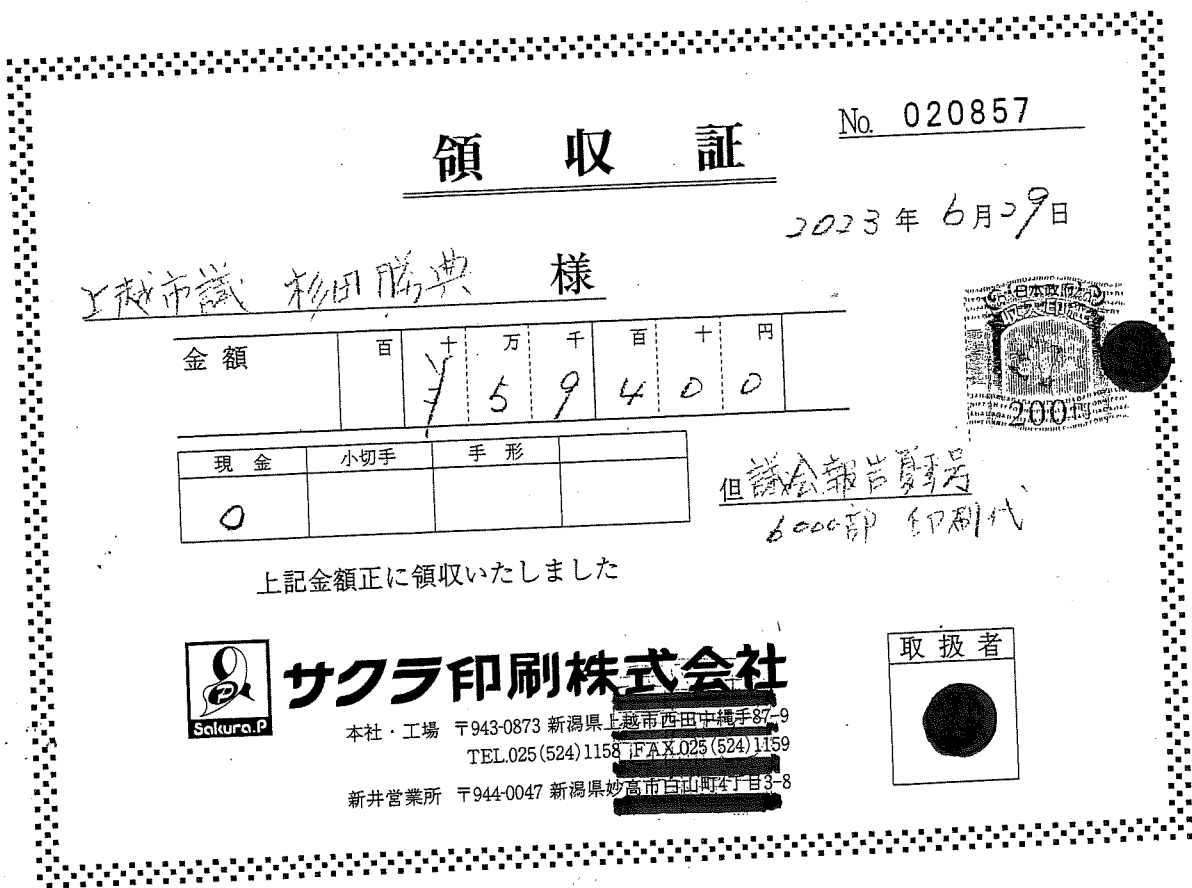 領収証
No. 020857
2023年6月29日
上越市議 杉田勝典 様
金額 百 十 万 千 百 十 円
¥ 5 9 4 0 0
現金 小切手 手形
0
日本政府
収入印紙
200円
但 議会報告夏季号
6000部 印刷代
上記金額正に領収いたしました
Sakura.P
サクラ印刷株式会社
本社・工場 〒943-0873 新潟県上越市西田中縄手87-9
TEL.025(524)1158 FAX.025(524)1159
新井営業所 〒944-0047 新潟県妙高市白山町4丁目3-8
取扱者